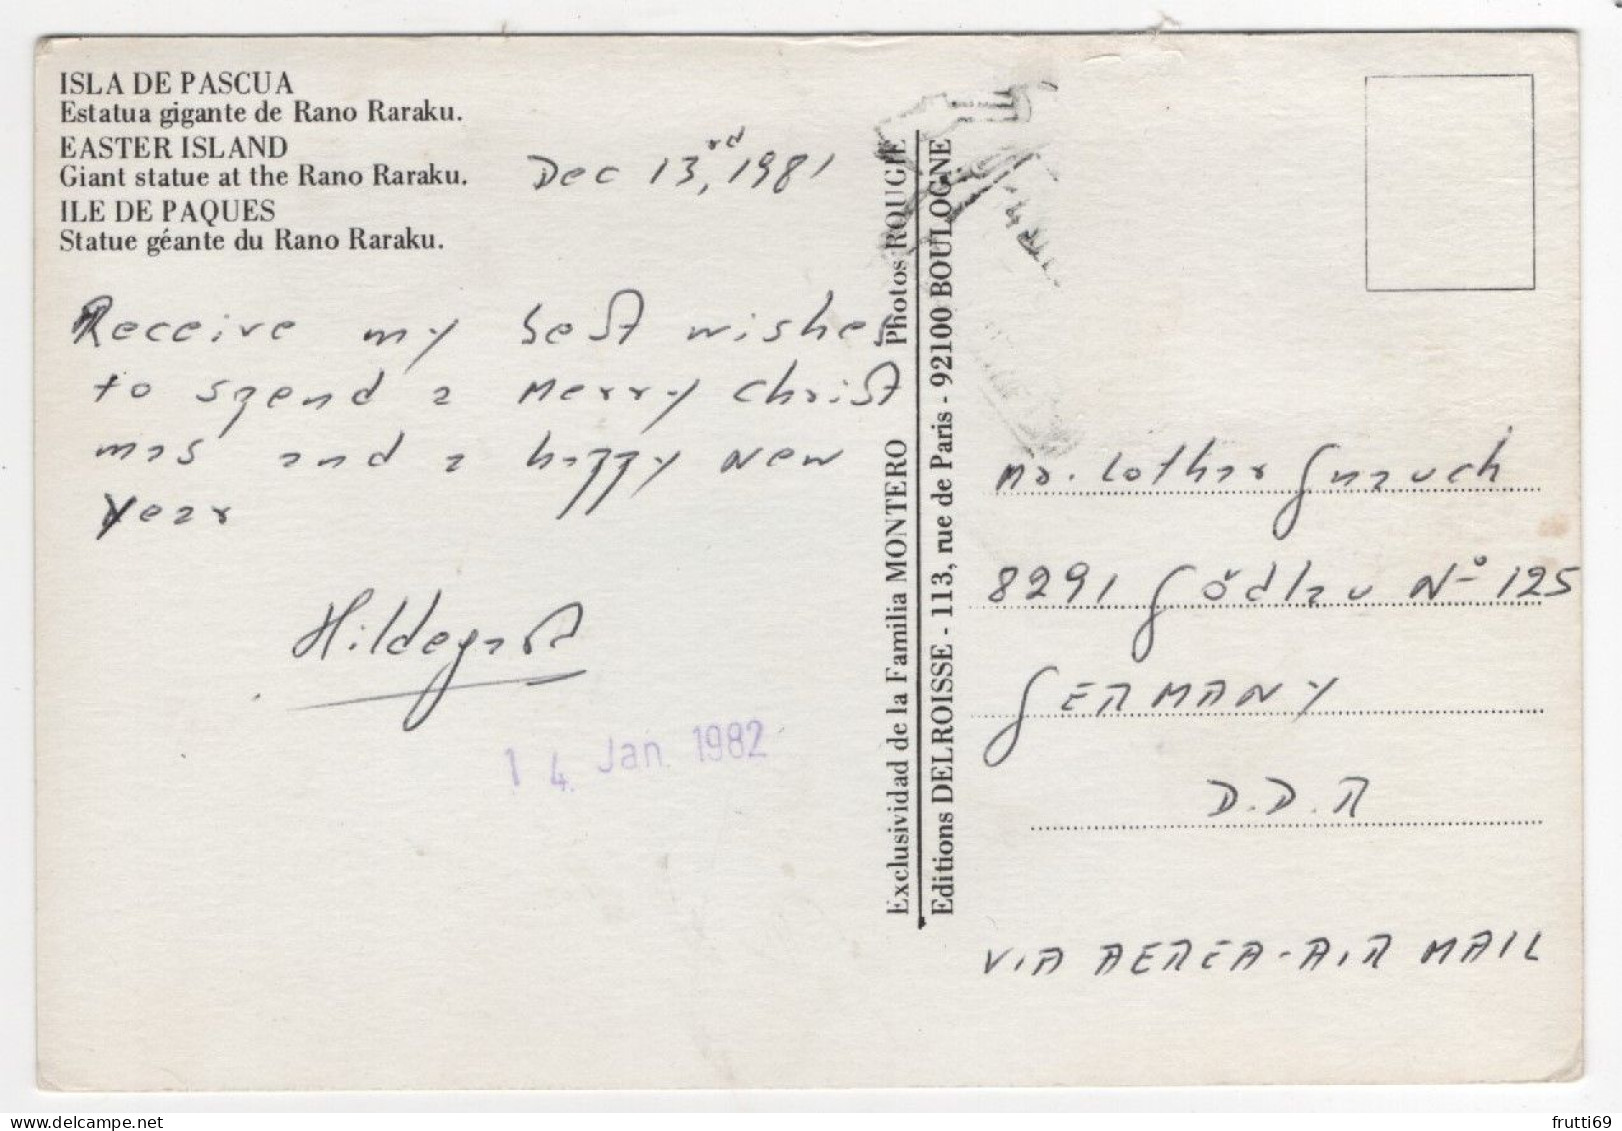 ISLA DE PASCUA
Estatua gigante de Rano Raraku.
EASTER ISLAND
Giant statue at the Rano Raraku.
ILE DE PAQUES
Statue géante du Rano Raraku.
Dec 13rd, 1981
Receive my best wishes
to spend a Merry Christ
mas and a happy New
Year
Hildegart
14. Jan. 1982
Exclusividad de la Familia MONTERO Photos ROUGIE
Editions DELROISSE - 113, rue de Paris - 92100 BOULOGNE
Mr. Lothar Gnauch
8291 Gödlau Nº 125
GERMANY
D.D.R
VIA AEREA-AIR MAIL
frutti69